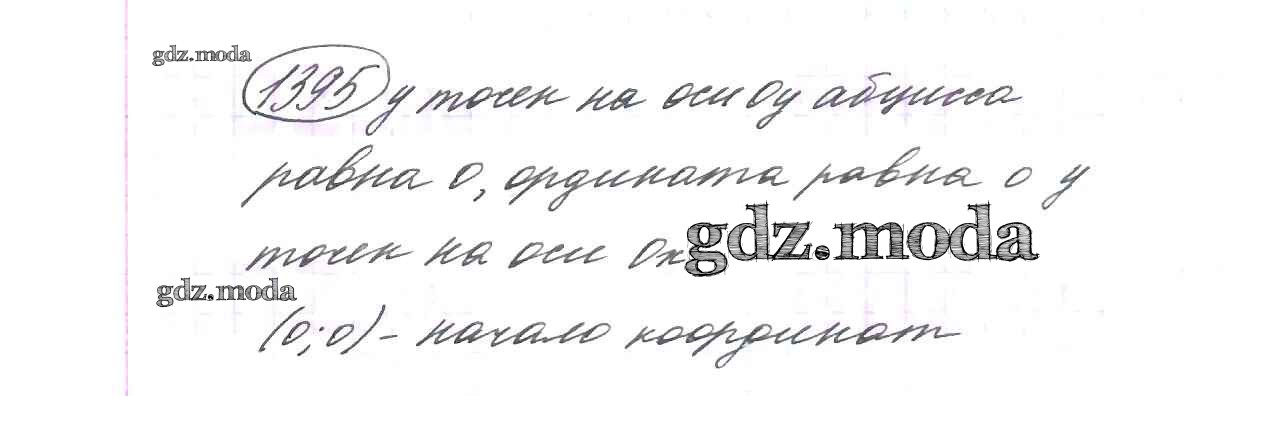 gdz.moda
1395 у точек на оси Oy абцисса
равна 0, ордината равна 0 у
точек на оси Ox
gdz.moda
gdz.moda
(0;0) - начало координат